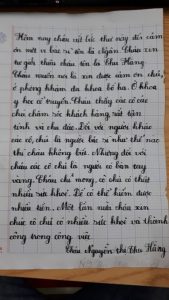 Hôm nay cháu viết bức thư này để cảm
ơn một vị bác sĩ tên là Ngân. Cháu xin
tự giới thiệu cháu tên là Thu Hằng
Cháu muốn nói là xin được cảm ơn chú,
ở phòng khám đa khoa bé hà. Ở khoa
y học cổ truyền. Cháu thấy các cô các
chú chăm sóc khách hàng rất tận
tình và chu đáo. Đối với người khác
các cô, chú là người bác sĩ như thế nào
thì cháu không biết. Nhưng đối với
cháu các cô chú là người có bàn tay
vàng. Cháu chỉ mong, cô chú có thật
nhiều sức khoẻ. Để có thể kiếm được
nhiều tiền. Một lần nữa cháu xin
chúc cô chú có nhiều sức khoẻ và thành
công trong công việc.
Cháu Nguyễn Thị Thu Hằng